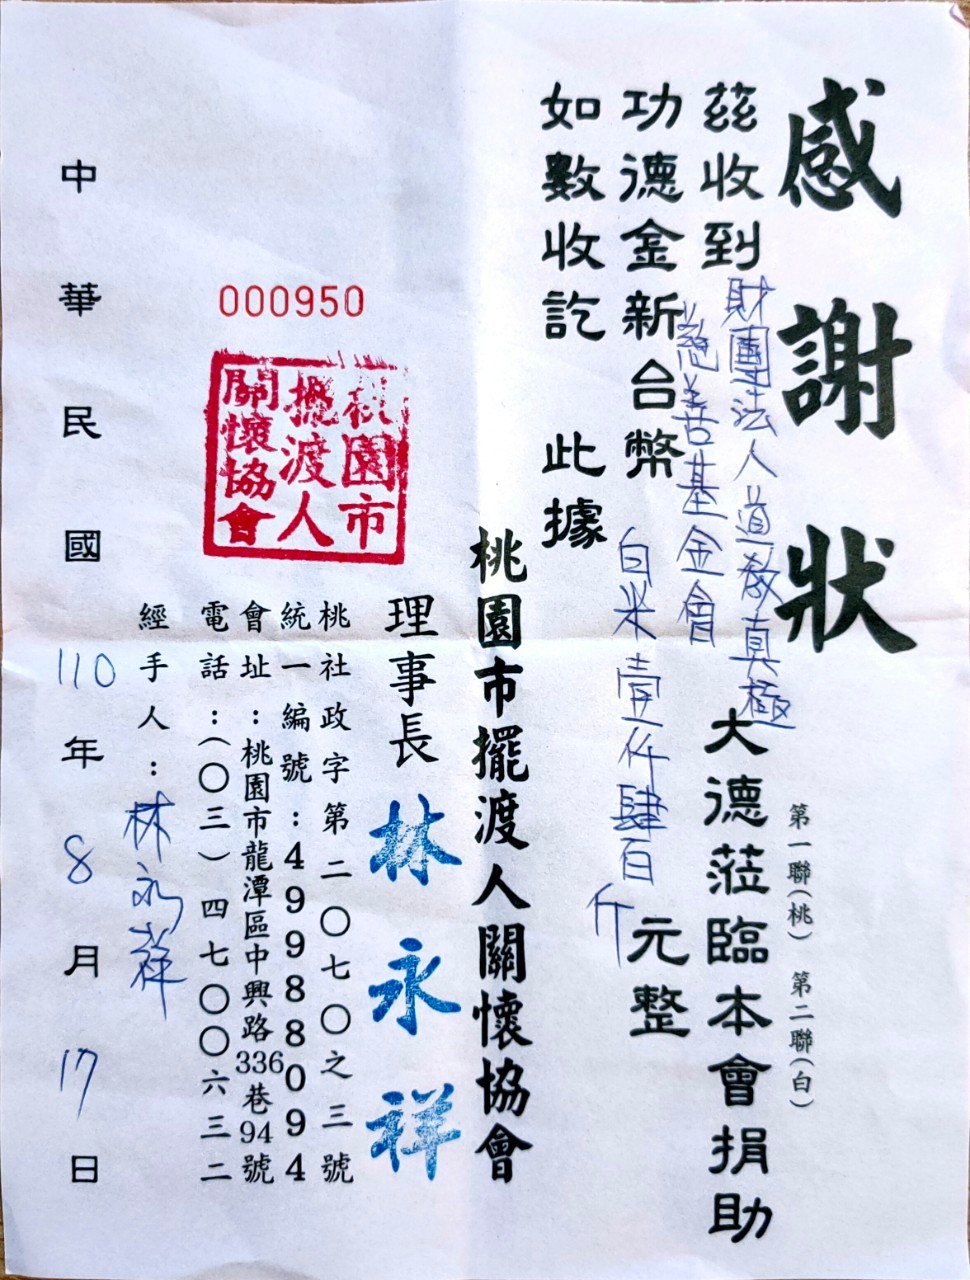 感謝狀
第一聯(桃) 第二聯(白)
茲收到財團法人道教真極
慈善基金會
大德蒞臨本會捐助
功德金新台幣白米壹仟肆百斤元整
如數收訖 此據
桃園市擺渡人關懷協會
理事長林永祥
桃社政字第二〇七〇之三號
統一編號:49988094
會址:桃園市龍潭區中興路336巷94號
電話:(〇三)四七〇〇六三二
000950
桃園市
擺渡人
關懷協會
經手人:林永祥
中華民國110年8月17日